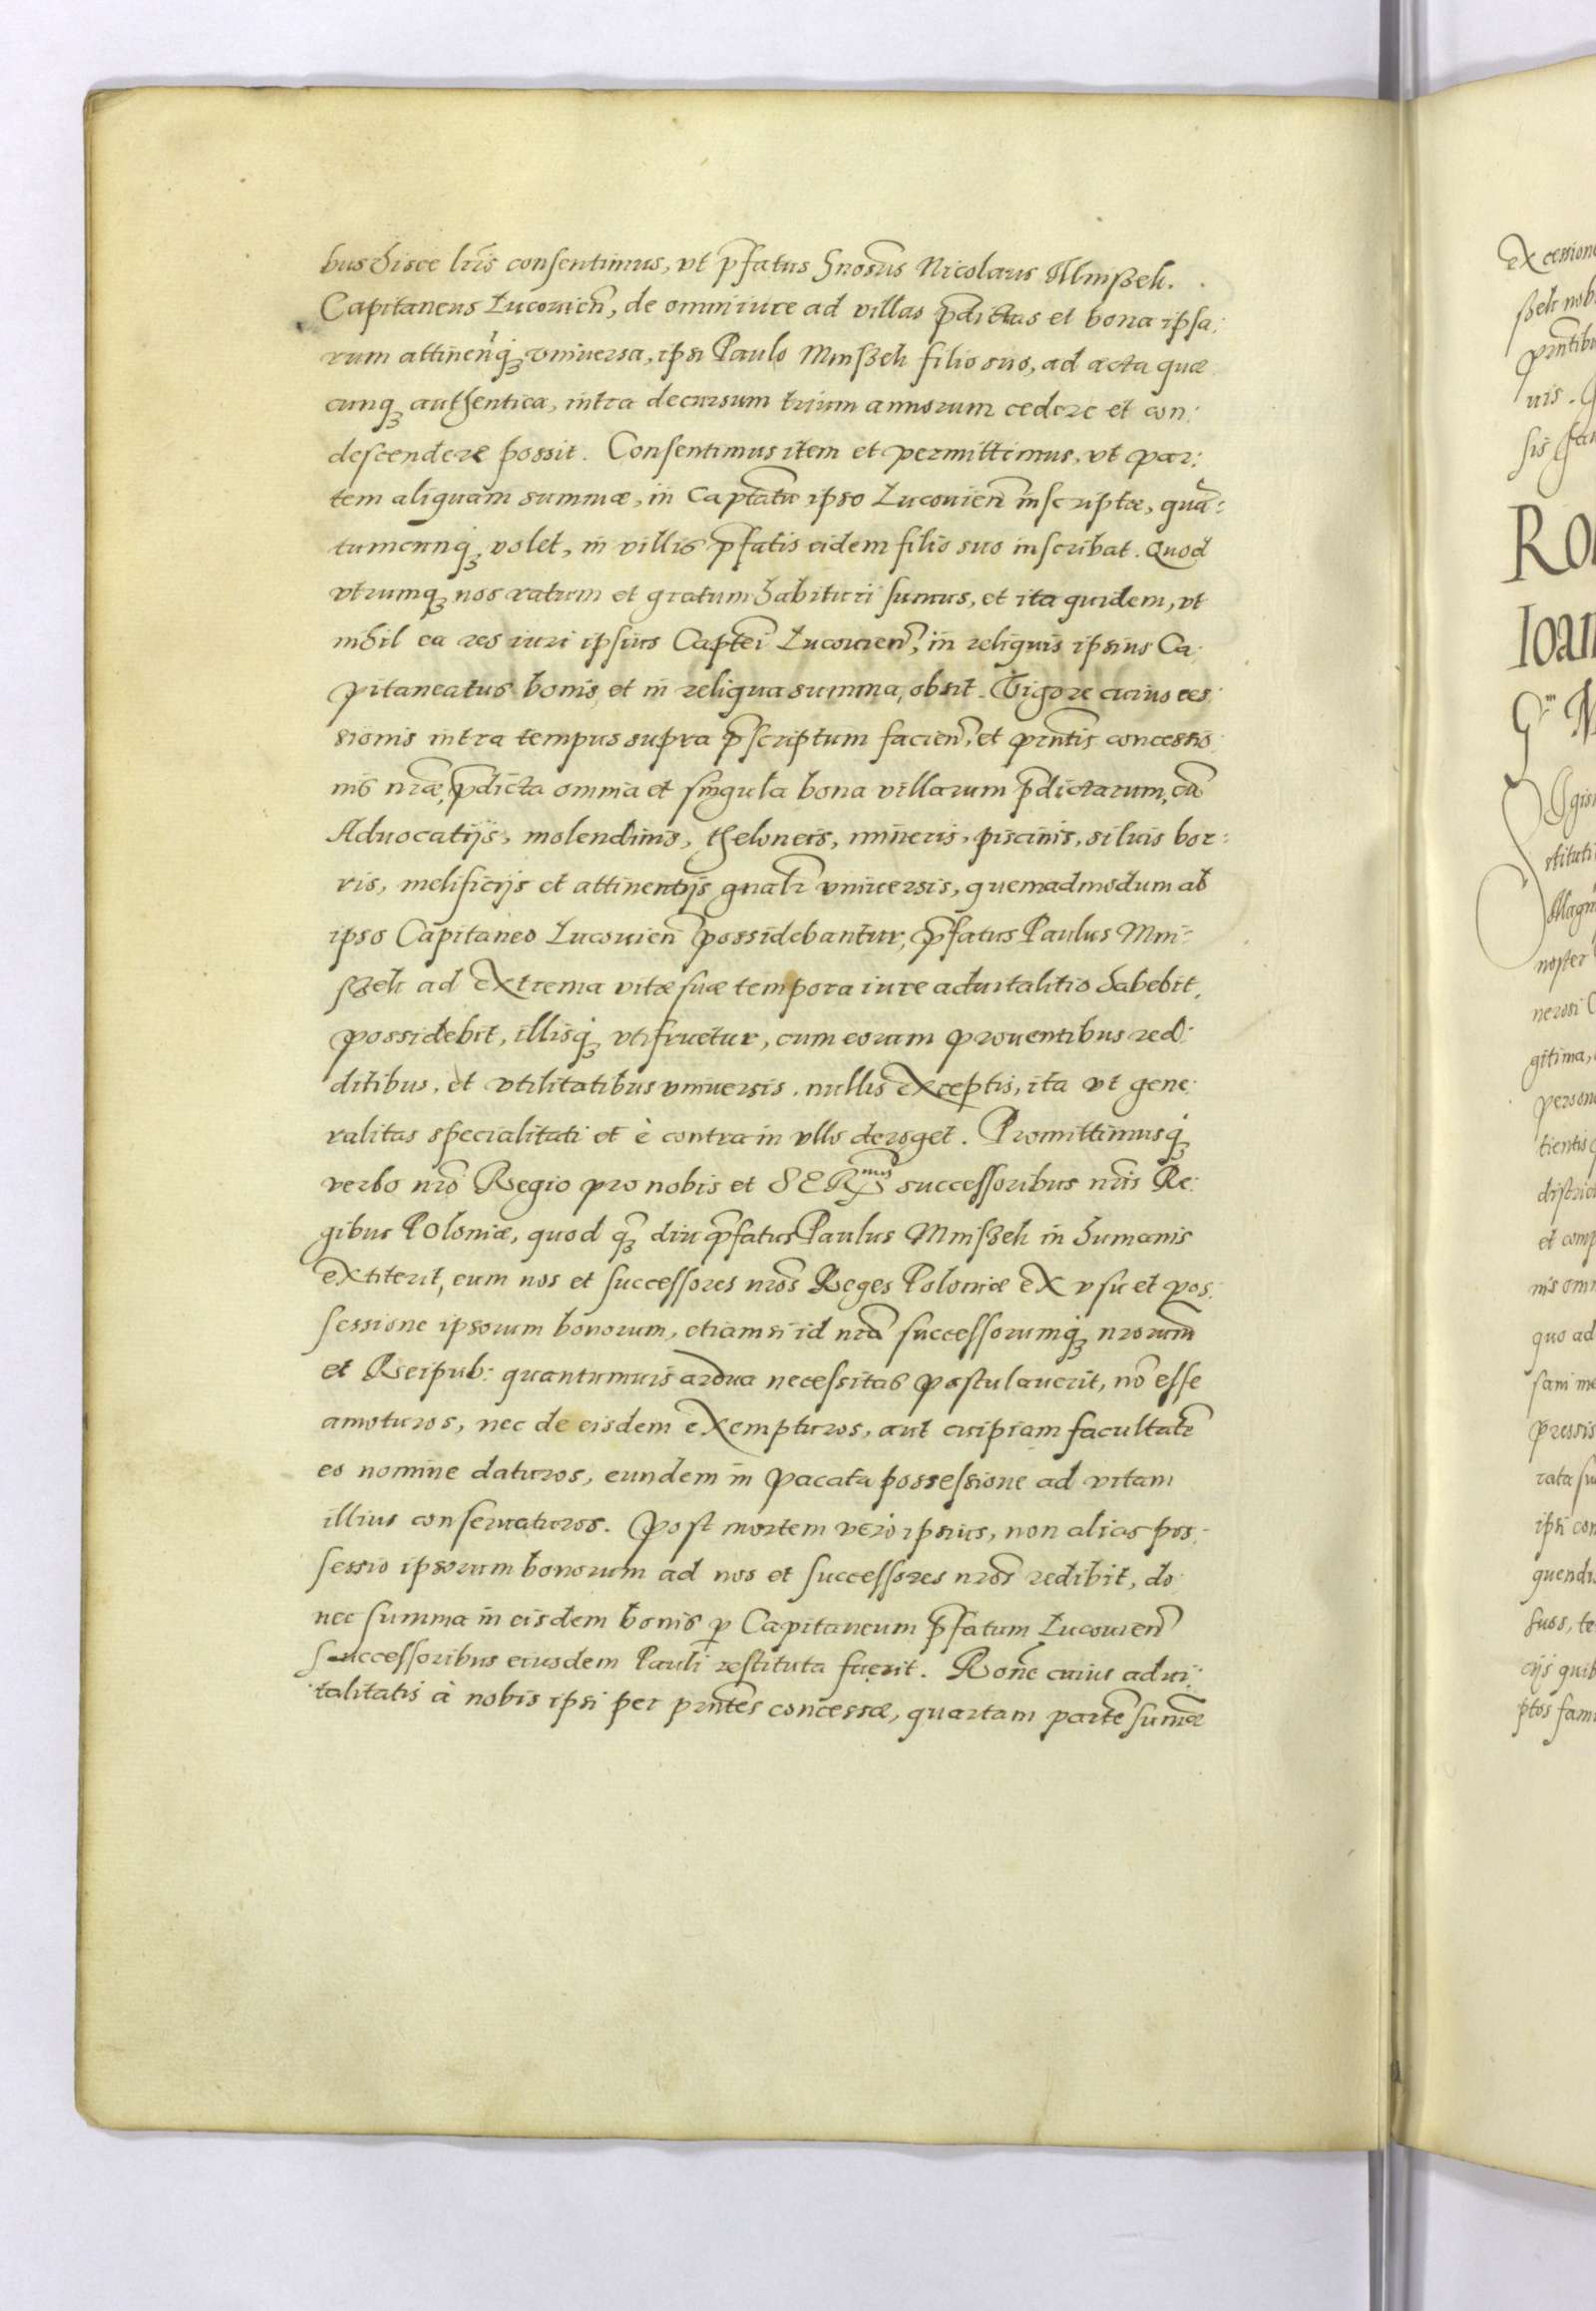 bus hisce lr̃is consentimus, vt p̃fatus Gnosus Nicolaus Mniszek.
Capitaneus Lucovień, de omni iure ad villas p̃dictas et bona ipsa:
rum attineñq̨ vniuersa, ipsi Paulo Mniszek filio suo, ad acta quæ
cunq̨ authentica, intra decursum trium annorum cedere et con:
descendere possit. Consentimus item et permittimus, vt par:
tem aliquam summæ, in Captãtu ipso Lucovień inscriptæ, quã:
tumcunq̨ volet, in villis p̃fatis eidem filio suo inscribat. Quod
vtrumq̨ nos ratum et gratum habituri sumus, et ita quidem, vt
nihil ea res iuri ipsius Captei Lucovień, in reliquis ipsius Ca:
pitaneatus bonis, et in reliqua summa, obsit. Vigore cuius ces:
sionis intra tempus supra p̃scriptum facień, et pñtis concessio:
nis nr̃æ, p̃dicta omnia et singula bona villarum p̃dictarum, cũ
Aduocatijs, molendinis, theloneis, mineris, piscinis, siluis bor:
ris, melificijs et attinentijs gnali vniuersis, quemadmodum ab
ipso Capitaneo Lucovień possidebantur, p̃fatus Paulus Mni:
szek ad extrema vitæ suæ tempora iure aduitalitio habebit,
possidebit, illisq̨ vtifruetur, cum eorum prouentibus red:
ditibus, et vtilitatibus vniuersis, nullis exceptis, ita vt gene:
ralitas specialitati et è contra in vllo deroget. Promittimusq̨
verbo nr̃o Regio pro nobis et SERmis successoribus nr̃is Re:
gibus Poloniæ, quod q̨̃ diu p̃fatus Paulus Mniszek in humanis
extiterit, eum nos et successores nr̃os Reges Poloniæ ex vsu et pos:
sessione ipsorum bonorum, etiamsi id nr̃a successorumq̨ nr̃orum
et Reipub: quantumuis ardua necessitas postulauerit, nõ esse
amoturos, nec de eisdem exempturos, aut cuipiam facultatẽ
eo nomine daturos, eundem in pacata possessione ad vitam
illius conseruaturos. Post mortem vero ipsius, non alias pos:
sessio ipsorum bonorum ad nos et successores nr̃os redibit, do:
nec summa in eisdem bonis p̱ Capitaneum p̃fatum Lucovień
successoribus eiusdem Pauli restituta fuerit. Rõne cuius adui:
talitatis à nobis ipsi per pr̃ntes concessæ, quartam partẽ sum̃æ